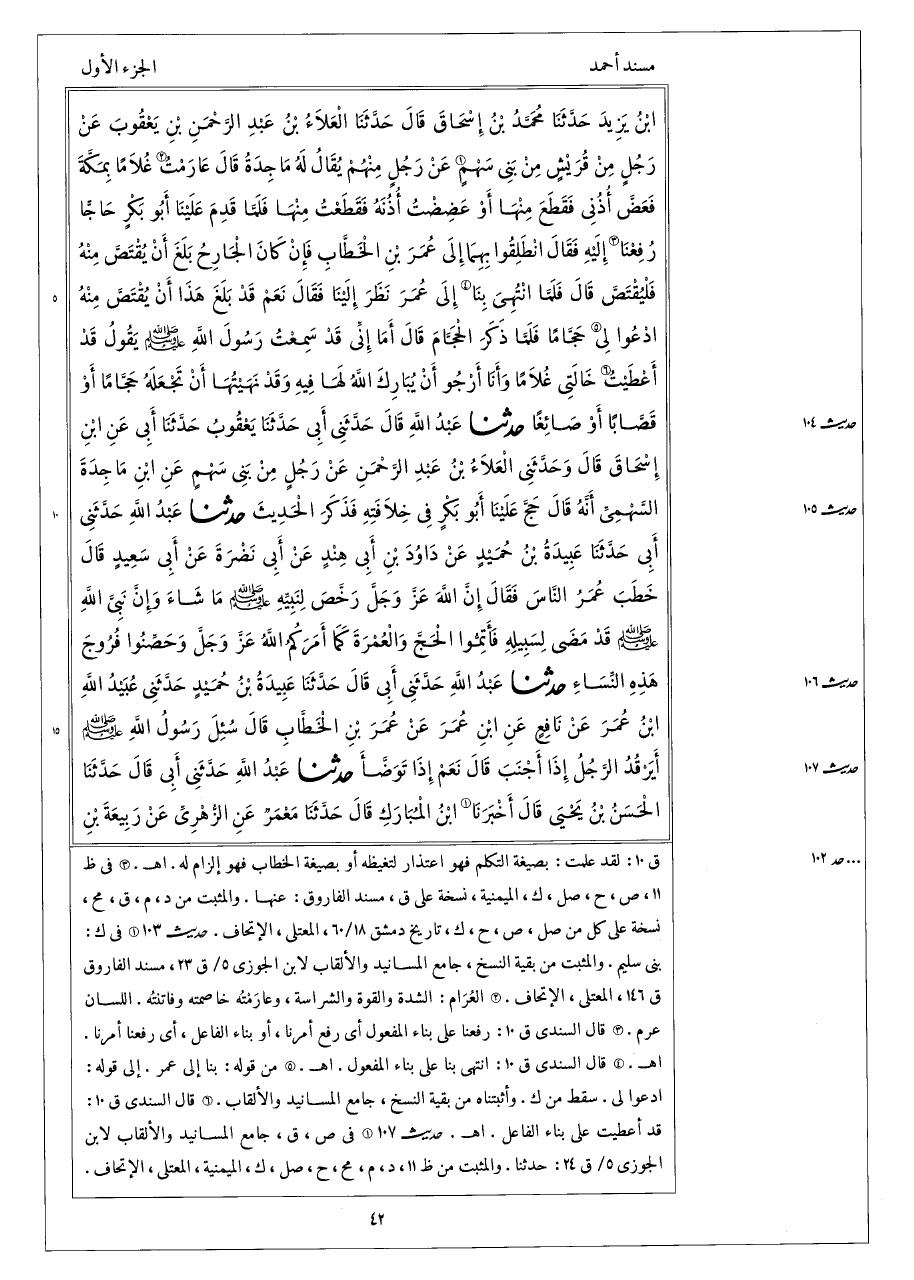 مسند أحمد الجزء الأول
ابْنُ يَزِيدَ حَدَّثَنَا مُحَمَّدُ بْنُ إِسْحَاقَ قَالَ حَدَّثَنَا الْعَلاَءُ بْنُ عَبْدِ الرَّحْمَنِ بْنِ يَعْقُوبَ عَنْ
رَجُلٍ مِنْ قُرَيْشٍ مِنْ بَنِى سَهْمٍ① عَنْ رَجُلٍ مِنْهُمْ يُقَالُ لَهُ مَاجِدَةُ قَالَ عَارَمْتُ② غُلاَمًا بِمَكَّةَ
فَعَضَّ أُذُنِى فَقَطَعَ مِنْهَا أَوْ عَضِضْتُ أُذُنَهُ فَقَطَعْتُ مِنْهَا فَلَمَّا قَدِمَ عَلَيْنَا أَبُو بَكْرٍ حَاجًّا
رُفِعْنَا③ إِلَيْهِ فَقَالَ انْطَلِقُوا بِهِمَا إِلَى عُمَرَ بْنِ الْخَطَّابِ فَإِنْ كَانَ الْجَارِحُ بَلَغَ أَنْ يُقْتَصَّ مِنْهُ
فَلْيُقْتَصَّ قَالَ فَلَمَّا انْتُهِىَ بِنَا④ إِلَى عُمَرَ نَظَرَ إِلَيْنَا فَقَالَ نَعَمْ قَدْ بَلَغَ هَذَا أَنْ يُقْتَصَّ مِنْهُ ٥
ادْعُوا لِى⑤ حَجَّامًا فَلَمَّا ذَكَرَ الْحَجَّامَ قَالَ أَمَا إِنِّى قَدْ سَمِعْتُ رَسُولَ اللَّهِ ﷺ يَقُولُ قَدْ
أَعْطَيْتُ⑥ خَالَتِى غُلاَمًا وَأَنَا أَرْجُو أَنْ يُبَارِكَ اللَّهُ لَهَا فِيهِ وَقَدْ نَهَيْتُهَا أَنْ تَجْعَلَهُ حَجَّامًا أَوْ
حديث ١٠٤ قَصَّابًا أَوْ صَائِغًا حدثنا عَبْدُ اللَّهِ قَالَ حَدَّثَنِى أَبِى حَدَّثَنَا يَعْقُوبُ حَدَّثَنَا أَبِى عَنِ ابْنِ
إِسْحَاقَ قَالَ وَحَدَّثَنِى الْعَلاَءُ بْنُ عَبْدِ الرَّحْمَنِ عَنْ رَجُلٍ مِنْ بَنِى سَهْمٍ عَنِ ابْنِ مَاجِدَةَ
حديث ١٠٥ السَّهْمِىِّ أَنَّهُ قَالَ حَجَّ عَلَيْنَا أَبُو بَكْرٍ فِى خِلاَفَتِهِ فَذَكَرَ الْحَدِيثَ حدثنا عَبْدُ اللَّهِ حَدَّثَنِى ١٠
أَبِى حَدَّثَنَا عَبِيدَةُ بْنُ حُمَيْدٍ عَنْ دَاوُدَ بْنِ أَبِى هِنْدٍ عَنْ أَبِى نَضْرَةَ عَنْ أَبِى سَعِيدٍ قَالَ
خَطَبَ عُمَرُ النَّاسَ فَقَالَ إِنَّ اللَّهَ عَزَّ وَجَلَّ رَخَّصَ لِنَبِيِّهِ ﷺ مَا شَاءَ وَإِنَّ نَبِىَّ اللَّهِ
ﷺ قَدْ مَضَى لِسَبِيلِهِ فَأَتِمُّوا الْحَجَّ وَالْعُمْرَةَ كَمَا أَمَرَكُمُ اللَّهُ عَزَّ وَجَلَّ وَحَصِّنُوا فُرُوجَ
حديث ١٠٦ هَذِهِ النِّسَاءِ حدثنا عَبْدُ اللَّهِ حَدَّثَنِى أَبِى قَالَ حَدَّثَنَا عَبِيدَةُ بْنُ حُمَيْدٍ حَدَّثَنِى عُبَيْدُ اللَّهِ
ابْنُ عُمَرَ عَنْ نَافِعٍ عَنِ ابْنِ عُمَرَ عَنْ عُمَرَ بْنِ الْخَطَّابِ قَالَ سُئِلَ رَسُولُ اللَّهِ ﷺ ١٥
حديث ١٠٧ أَيَرْقُدُ الرَّجُلُ إِذَا أَجْنَبَ قَالَ نَعَمْ إِذَا تَوَضَّأَ حدثنا عَبْدُ اللَّهِ حَدَّثَنِى أَبِى قَالَ حَدَّثَنَا
الْحَسَنُ بْنُ يَحْيَى قَالَ أَخْبَرَنَا① ابْنُ الْمُبَارَكِ قَالَ حَدَّثَنَا مَعْمَرٌ عَنِ الزُّهْرِىِّ عَنْ رَبِيعَةَ بْنِ
...حد ١٠٢ ق ١٠: لقد علمت: بصيغة التكلم فهو اعتذار لتغيظه أو بصيغة الخطاب فهو إلزام له. اهـ. ③ فى ظ
١١، ص، ح، صل، ك، الميمنية، نسخة على ق، مسند الفاروق: عنها. والمثبت من د، م، ق، مح،
نسخة على كل من صل، ص، ح، ك، تاريخ دمشق ٦٠/١٨، المعتلى، الإتحاف. حديث ١٠٣ ① فى ك:
بنى سليم. والمثبت من بقية النسخ، جامع المسانيد والألقاب لابن الجوزى ٥/ ق ٢٣، مسند الفاروق
ق ١٤٦، المعتلى، الإتحاف. ② العُرَام: الشدة والقوة والشراسة، وعارَمْته خاصمته وفاتنته. اللسان
عرم. ③ قال السندى ق ١٠: رفعنا على بناء المفعول أى رفع أمرنا، أو بناء الفاعل، أى رفعنا أمرنا.
اهـ. ④ قال السندى ق ١٠: انتهى بنا على بناء المفعول. اهـ. ⑤ من قوله: بنا إلى عمر. إلى قوله:
ادعوا لى. سقط من ك. وأثبتناه من بقية النسخ، جامع المسانيد والألقاب. ⑥ قال السندى ق ١٠:
قد أعطيت على بناء الفاعل. اهـ. حديث ١٠٧ ① فى ص، ق، جامع المسانيد والألقاب لابن
الجوزى ٥/ ق ٢٤: حدثنا. والمثبت من ظ ١١، د، م، مح، ح، صل، ك، الميمنية، المعتلى، الإتحاف.
٤٢